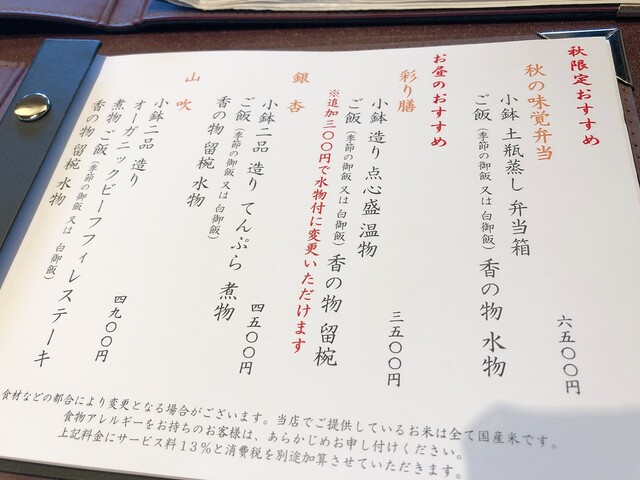 秋限定おすすめ
秋の味覚弁当
小鉢 土瓶蒸し 弁当箱
ご飯(季節の御飯 又は 白御飯) 香の物 水物
六五〇〇円
お昼のおすすめ
彩り膳
小鉢 造り 点心盛 温物
ご飯(季節の御飯 又は 白御飯) 香の物 留椀
三五〇〇円
※追加三〇〇円で水物付に変更いただけます
銀杏
小鉢二品 造り てんぷら 煮物
ご飯(季節の御飯 又は 白御飯)
香の物 留椀 水物
四五〇〇円
山吹
小鉢二品 造り
オーガニックビーフフィレステーキ
煮物 ご飯(季節の御飯 又は 白御飯)
香の物 留椀 水物
四九〇〇円
食材などの都合により変更となる場合がございます。当店でご提供しているお米は全て国産米です。
食物アレルギーをお持ちのお客様は、あらかじめお申し付けください。
上記料金にサービス料13%と消費税を別途加算させていただきます。